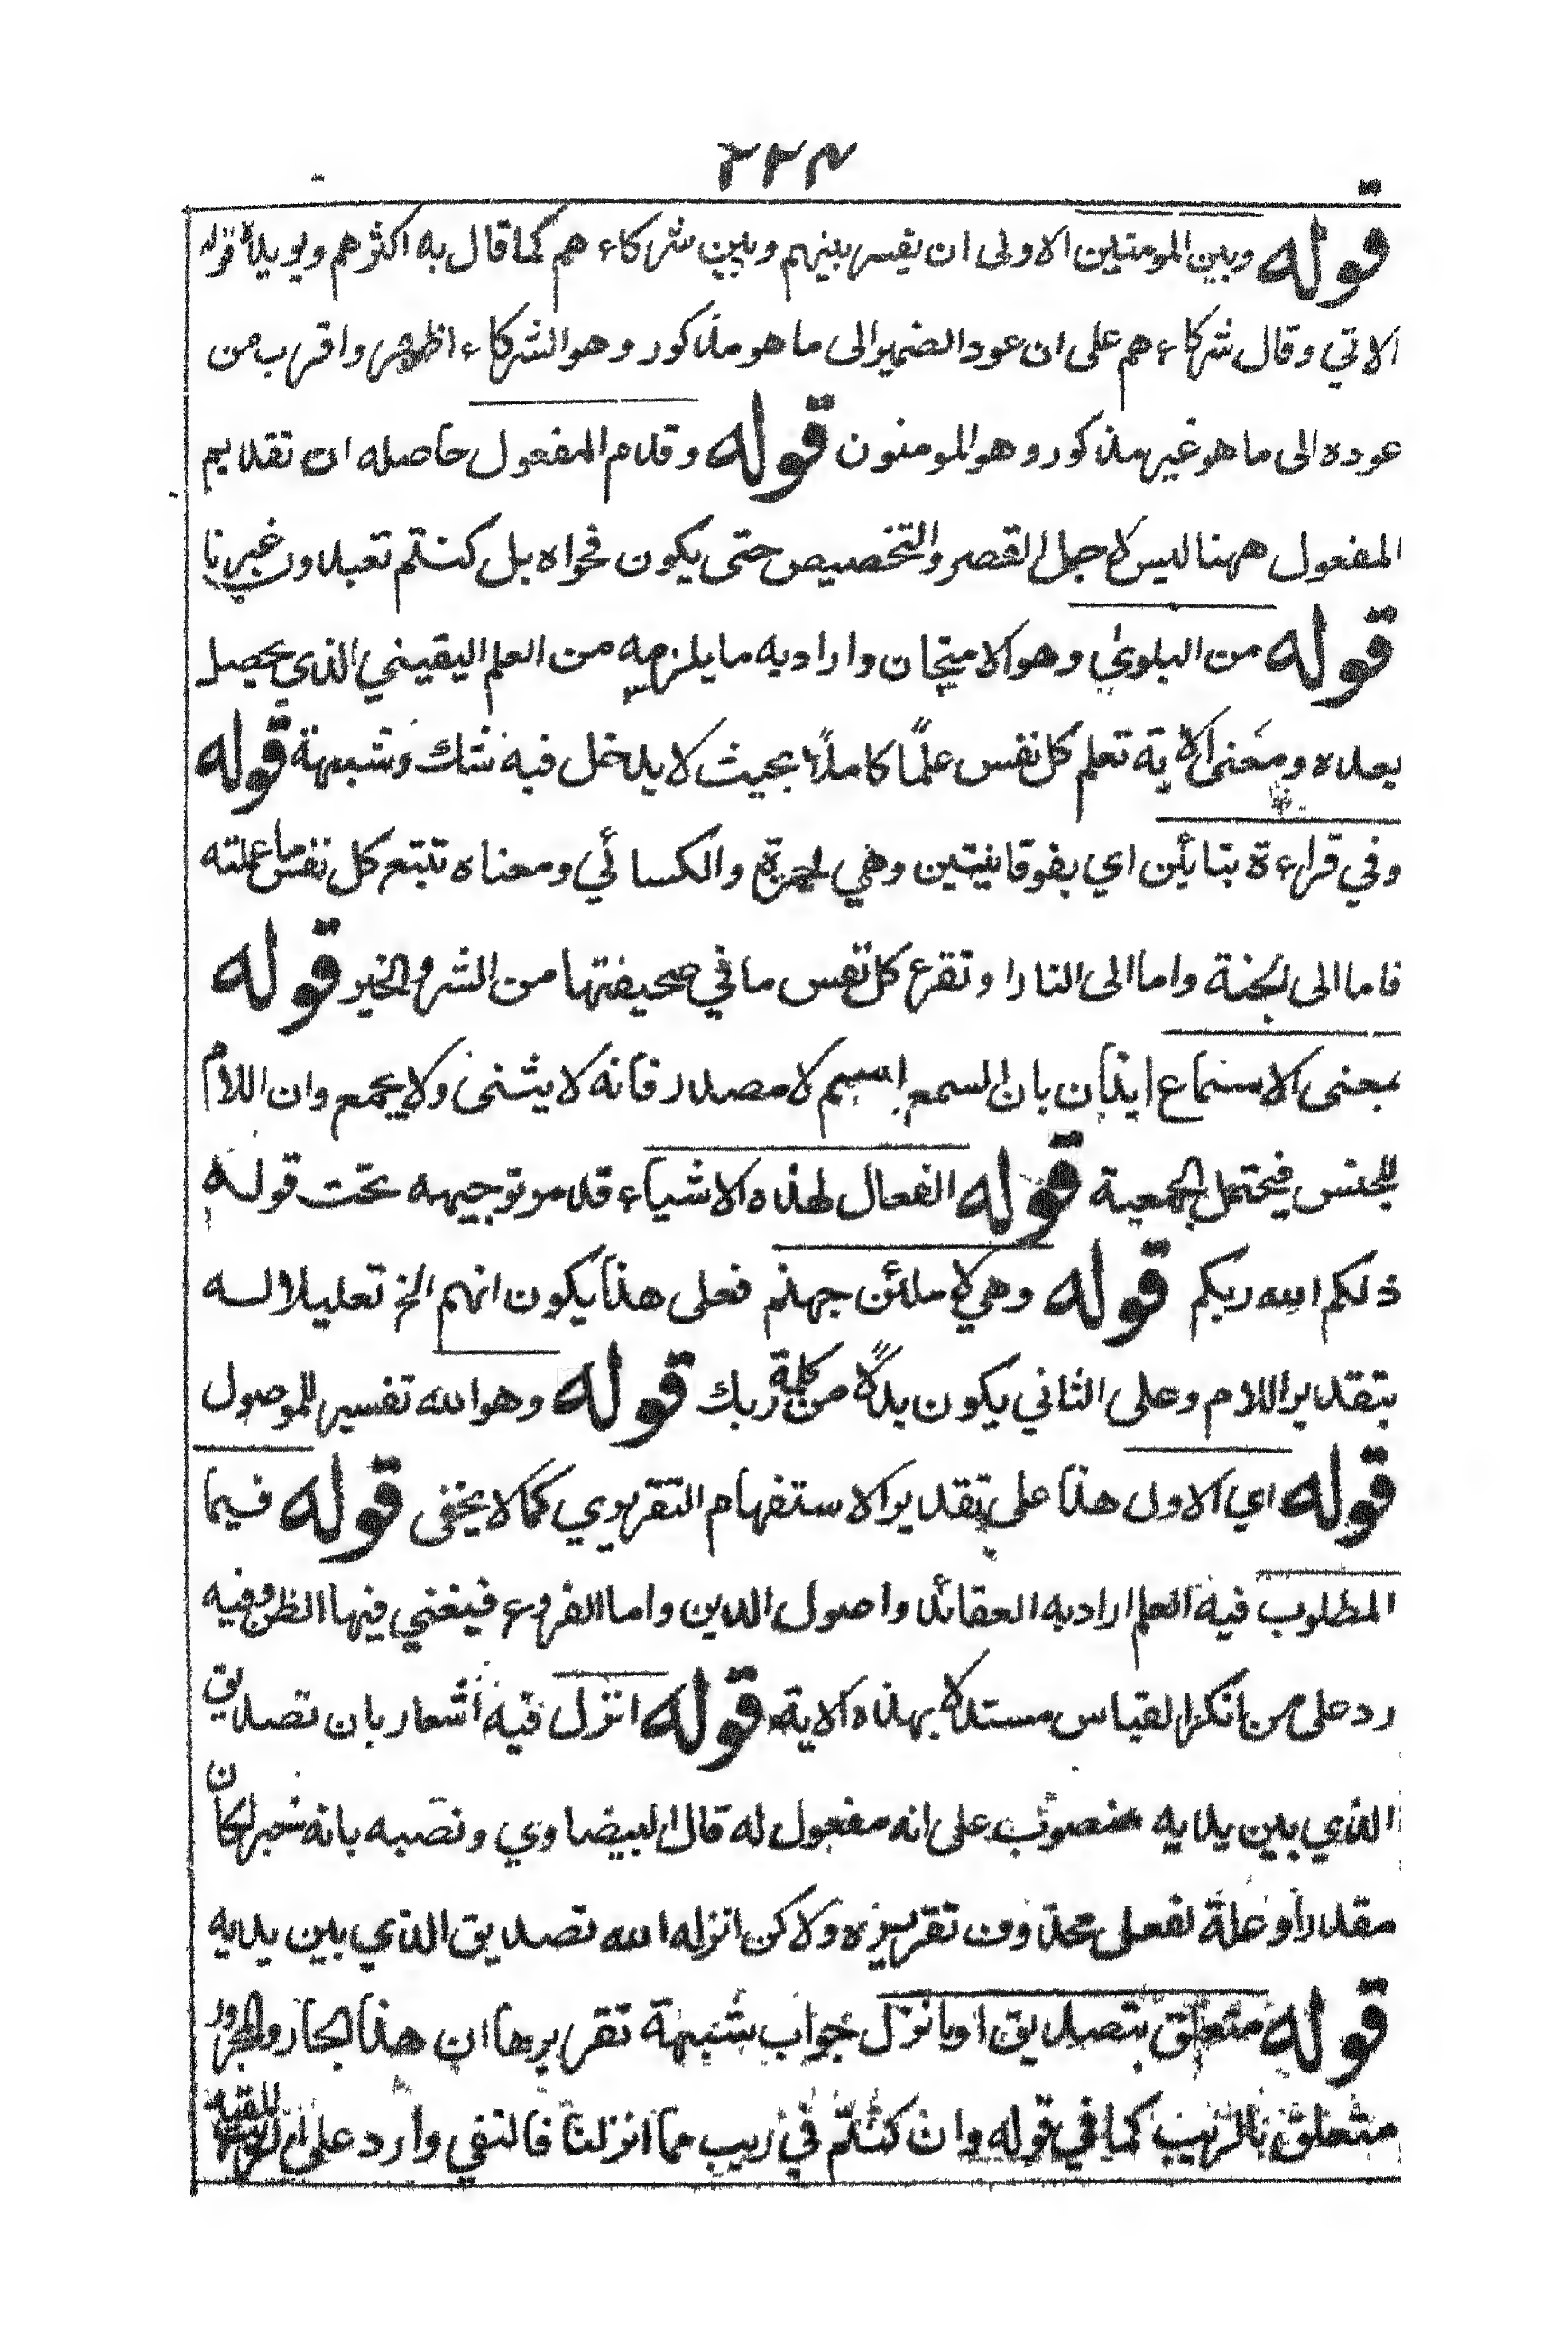 ٢٢٤
قوله وبين المومنين الاولى ان يفسر بينهم وبين شركاءهم كما قال به اكثرهم ويويده قوله
الاتي وقال شركاءهم على ان عود الضمير الى ما هو مذكور وهو الشركاء اظهر واقرب من
عوده الى ما هو غير مذكور وهو المومنون قوله وقدم المفعول حاصله ان تقديم
المفعول ههنا ليس لاجل القصر والتخصيص حتى يكون فحواه بل كنتم تعبدون غيرنا
قوله من البلوى وهو الامتحان واراد به ما يلزمه من العلم اليقيني الذي يحصل
بعده ومعنى الاية تعلم كل نفس علمًا كاملًا بحيث لا يدخل فيه شك وشبهة قوله
وفي قراءة بتائين اي بفوقانيتين وهي لحمزة والكسائي ومعناه تتبع كل نفس ما عملته
فاما الى الجنة واما الى النار او تقرء كل نفس ما في صحيفتها من الشر والخير قوله
بمعنى الاستماع ايذان بان السمع اسم لا مصدر فانه لا يثنى ولا يجمع وان اللام
للجنس فيحتمل الجمعية قوله الفعال لهذه الاشياء قد مر توجيهه تحت قوله
ذلكم الله ربكم قوله وهي لاملئن جهنم فعلى هذا يكون انهم الخ تعليلا له
بتقدير اللام وعلى الثاني يكون بدلاً من كلمة ربك قوله وهو الله تفسير للموصول
قوله اي الاول هذا على تقدير الاستفهام التقريري كما لا يخفى قوله فيما
المطلوب فيه العلم اراد به العقائد واصول الدين واما الفروع فيغني فيها الظن وفيه
رد على من انكر القياس مستدلا بهذه الاية قوله انزل فيه اشعار بان تصديق
الذي بين يديه منصوب على انه مفعول له قال البيضاوي ونصبه بانه خبر لكان
مقدرا او علة لفعل محذوف تقريره ولاكن انزله الله تصديق الذي بين يديه
قوله متعلق بتصديق او بانزل جواب شبهة تقريرها ان هذا الجار والمجرور
متعلق بالريب كما في قوله وان كنتم في ريب مما انزلنا فالنفي وارد على ان